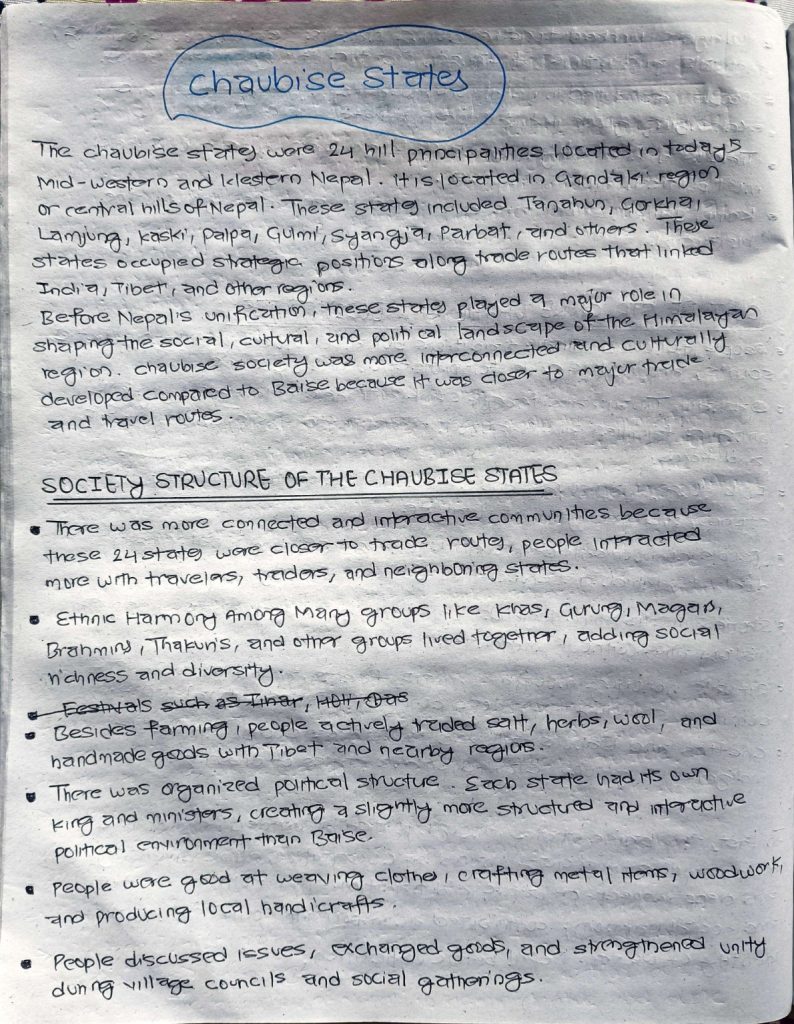 Chaubise States
The chaubise states were 24 hill principalities located in today's
Mid-western and Western Nepal. It is located in Gandaki region
or central hills of Nepal. These states included Tanahun, Gorkha,
Lamjung, Kaski, Palpa, Gulmi, Syangja, Parbat, and others. These
states occupied strategic positions along trade routes that linked
India, Tibet, and other regions.
Before Nepal's unification, these states played a major role in
shaping the social, cultural, and political landscape of the Himalayan
region. chaubise society was more interconnected and culturally
developed compared to Baise because it was closer to major trade
and travel routes.
SOCIETY STRUCTURE OF THE CHAUBISE STATES
• There was more connected and interactive communities because
these 24 states were closer to trade routes, people interacted
more with travelers, traders, and neighboring states.
• Ethnic Harmony Among Many groups like Khas, Gurung, Magars,
Brahmins, Thakuris, and other groups lived together, adding social
richness and diversity.
• Festivals such as Tihar, Holi, Das
• Besides farming, people actively traded salt, herbs, wool, and
handmade goods with Tibet and nearby regions.
• There was organized political structure. Each state had its own
king and ministers, creating a slightly more structured and interactive
political environment than Baise.
• People were good at weaving clothes, crafting metal items, woodwork,
and producing local handicrafts.
• People discussed issues, exchanged goods, and strengthened unity
during village councils and social gatherings.